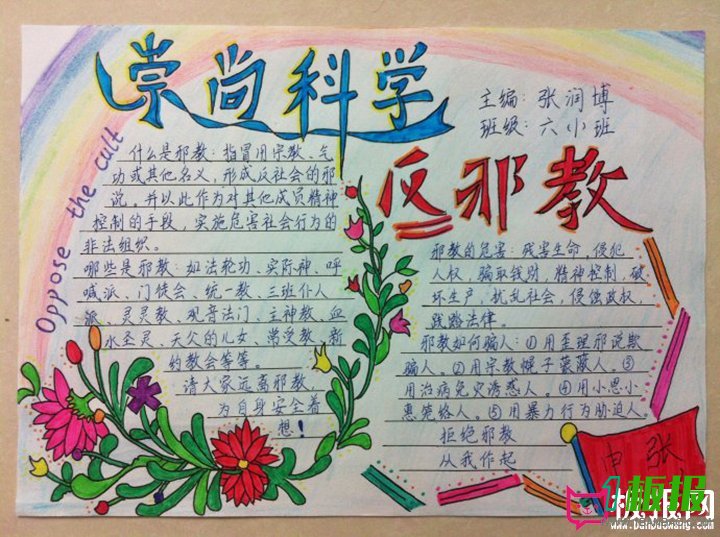 崇尚科学
主编：张润博
班级：六小班
反邪教
Oppose the cult
什么是邪教：指冒用宗教、气
功或其他名义，形成反社会的邪
说，并以此作为对其他成员精神
控制的手段，实施危害社会行为的
非法组织。
哪些是邪教：如法轮功、实际神、呼
喊派、门徒会、统一教、三班仆人
派、灵灵教、观音法门、主神教、血
水圣灵、天父的儿女、常受教、新
约教会等等。
请大家远离邪教，
为自身安全着
想！
邪教的危害：残害生命，侵犯
人权，骗取钱财，精神控制，破
坏生产，扰乱社会，侵蚀政权，
践踏法律。
邪教如何骗人：①用歪理邪说欺
骗人。②用宗教幌子蒙蔽人。③
用治病免灾诱惑人。④用小恩小
惠笼络人。⑤用暴力行为胁迫人。
拒绝邪教
从我作起
张
板报网
www.banbaowang.com